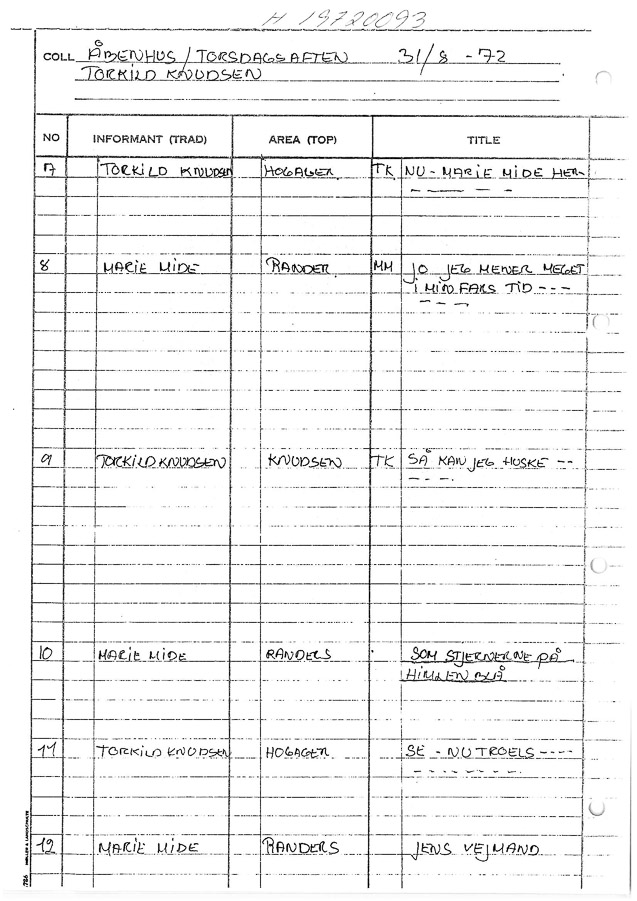 H 19720093
COLL ÅBENHUS / TORSDAGSAFTEN 31/8 - 72
TORKILD KNUDSEN
NO INFORMANT (TRAD) AREA (TOP) TITLE
7 TORKILD KNUDSEN HOGAGER TK NU - MARIE MIDE HER-
- — - -
8 MARIE MIDE RANDER MM JO JEG MENER MEGET
I MIN FARS TID ---
- - —
9 TORKILD KNUDSEN KNUDSEN TK SÅ KAN JEG HUSKE --
- - - -.
10 MARIE MIDE RANDERS SOM STJERNERNE PÅ
HIMLEN BLÅ
11 TORKILD KNUDSEN HOGAGER SE - NU TROELS ----
- - - - - - - -.
12 MARIE MIDE RANDERS JENS VEJMAND